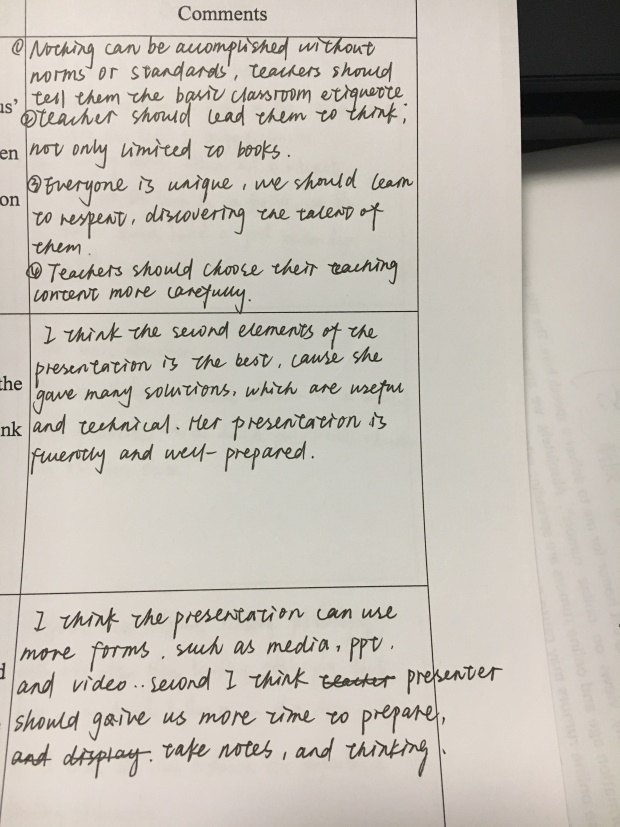 Comments
① Nothing can be accomplished without
norms or standards, teachers should
tell them the basic classroom etiquette
us'
② teacher should lead them to think,
en
not only limited to books.
③ Everyone is unique, we should learn
on
to respent, discovering the talent of
them.
④ Teachers should choose their teaching
content more carefully.
I think the second elements of the
presentation is the best, cause she
the
gave many solutions, which are useful
nk
and technical. Her presentation is
fluerctly and well-prepared.
I think the presentation can use
more forms, such as media, ppt,
d
and video.. second I think teacher presenter
should gaive us more time to prepare,
and display. take notes, and thinking.